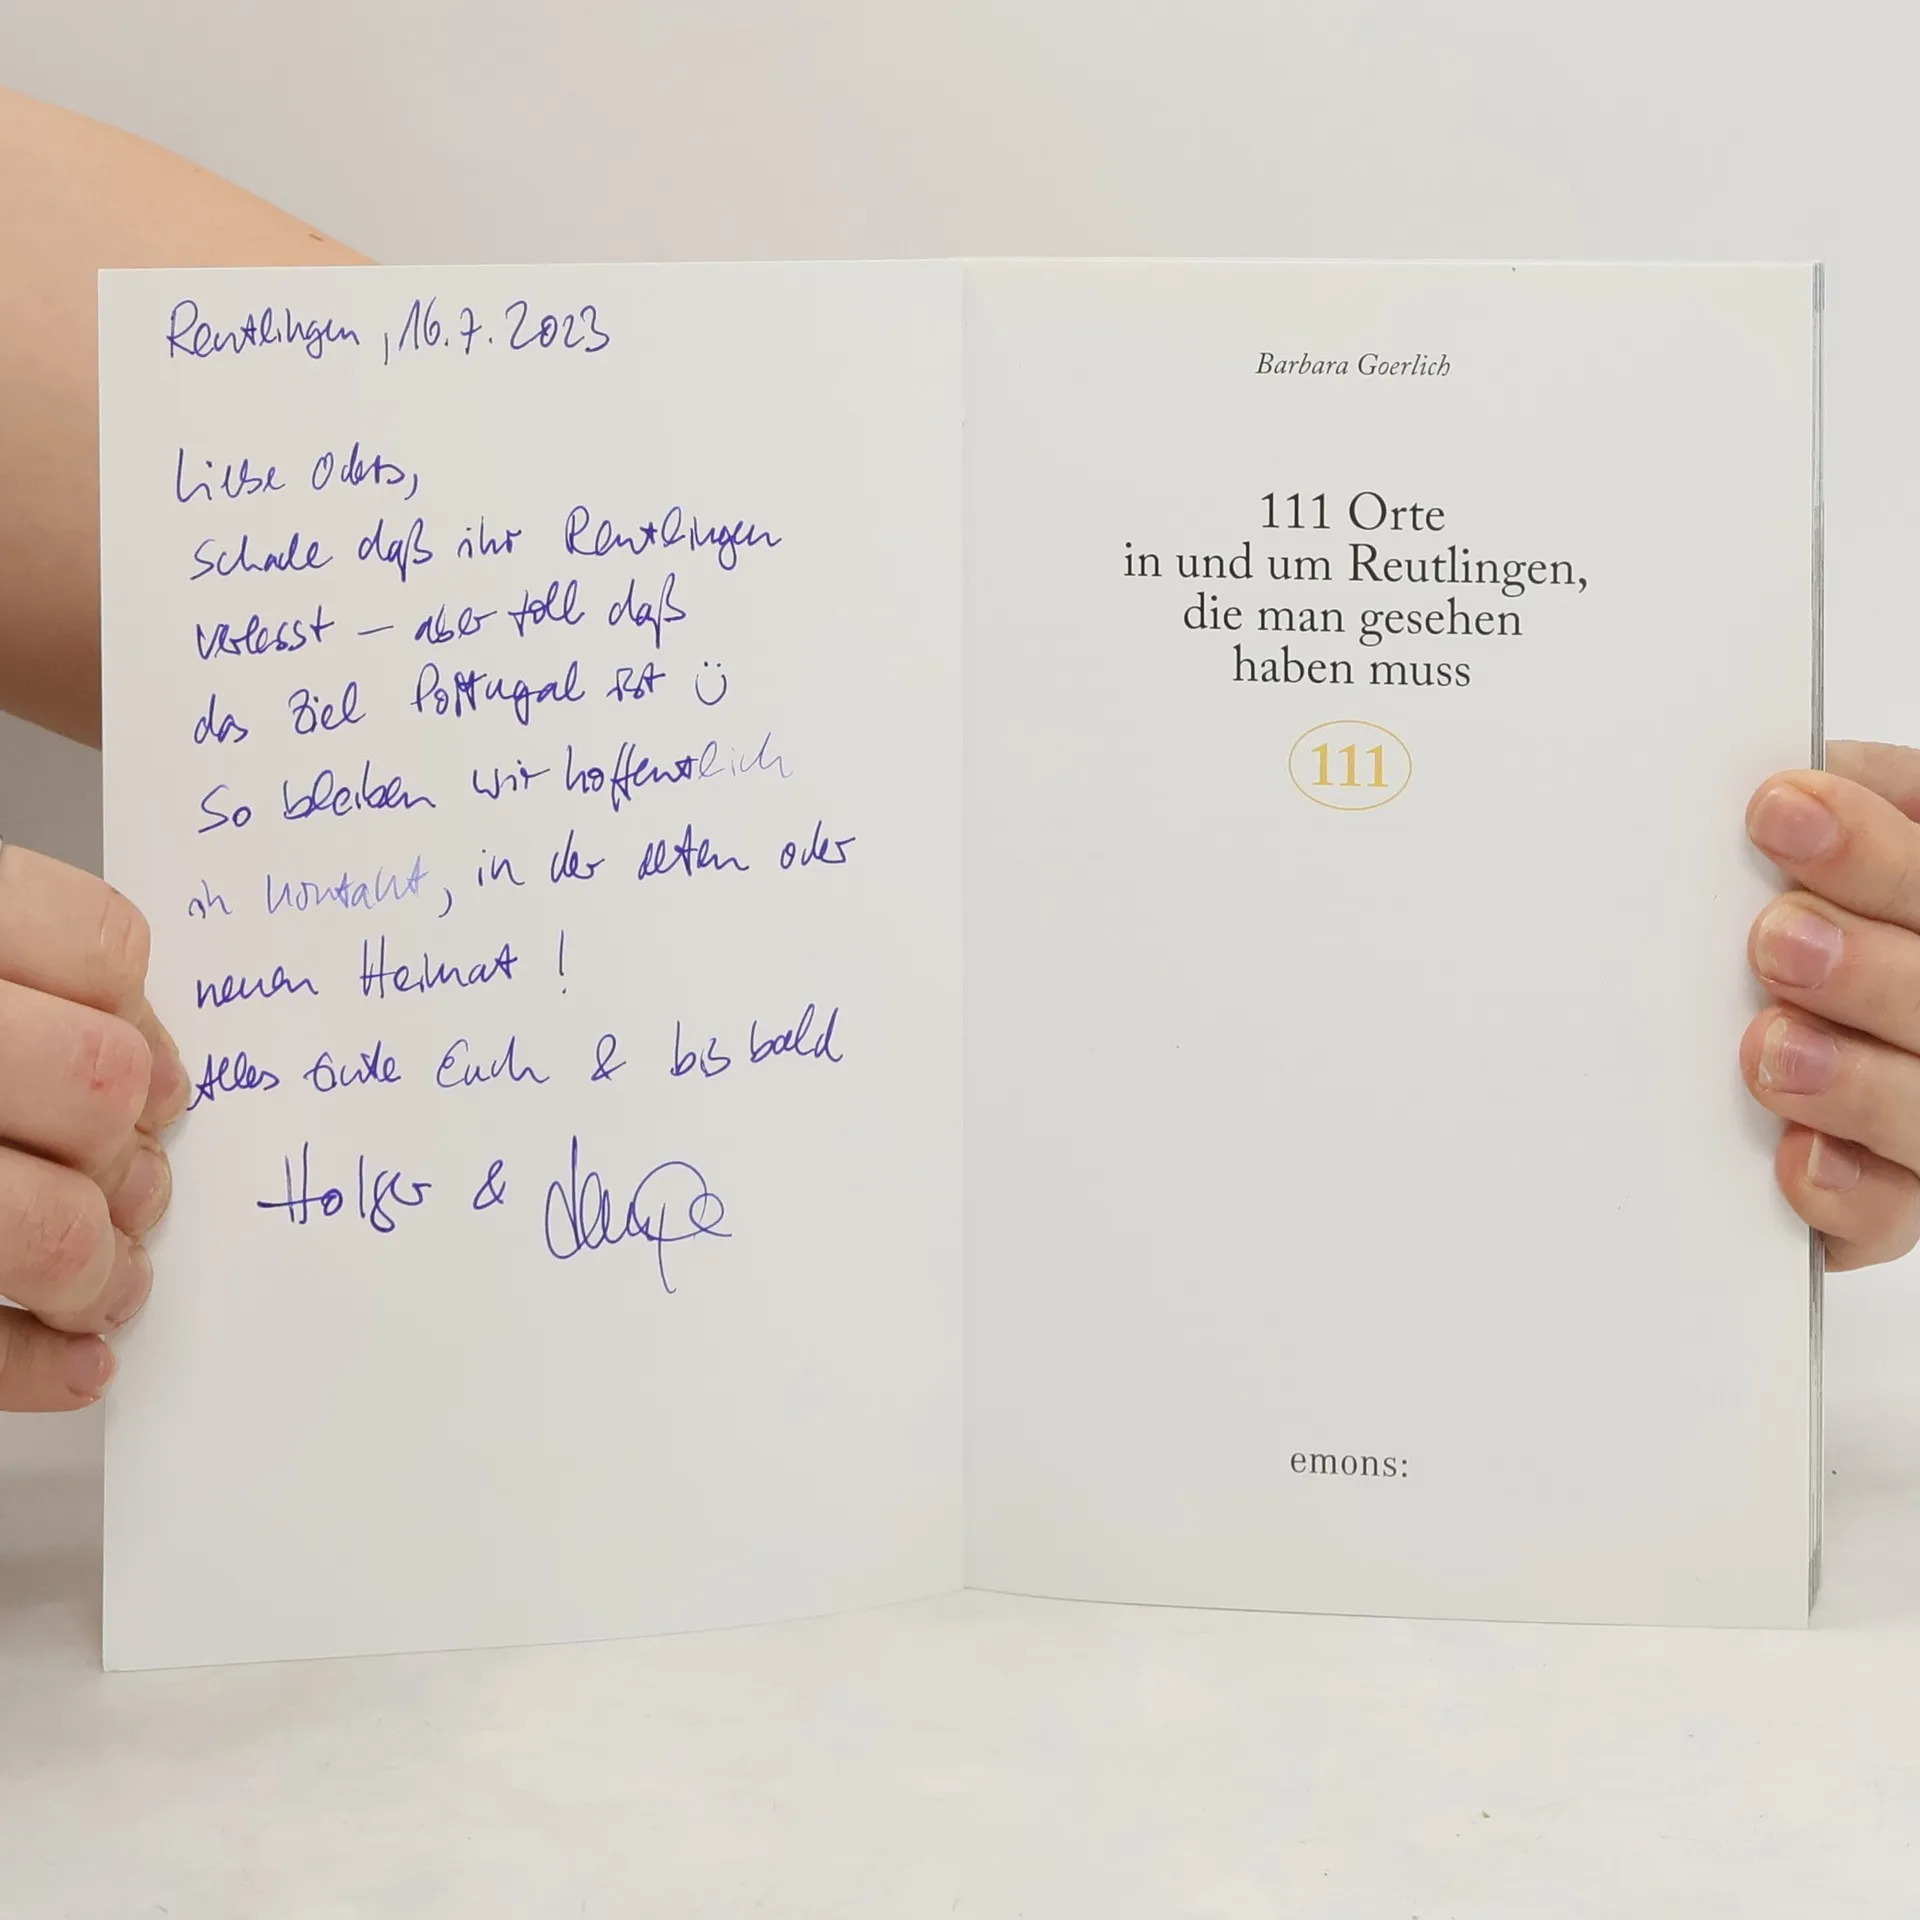 Reutlingen, 16.7.2023
Liebe
schade daß ihr Reutlingen
verlasst – aber toll daß
das Ziel Portugal ist ü
So bleiben wir hoffentlich
in Kontakt, in der alten oder
neuen Heimat!
Alles Gute Euch & bis bald
Holger &
Barbara Goerlich
111 Orte
in und um Reutlingen,
die man gesehen
haben muss
111
emons: